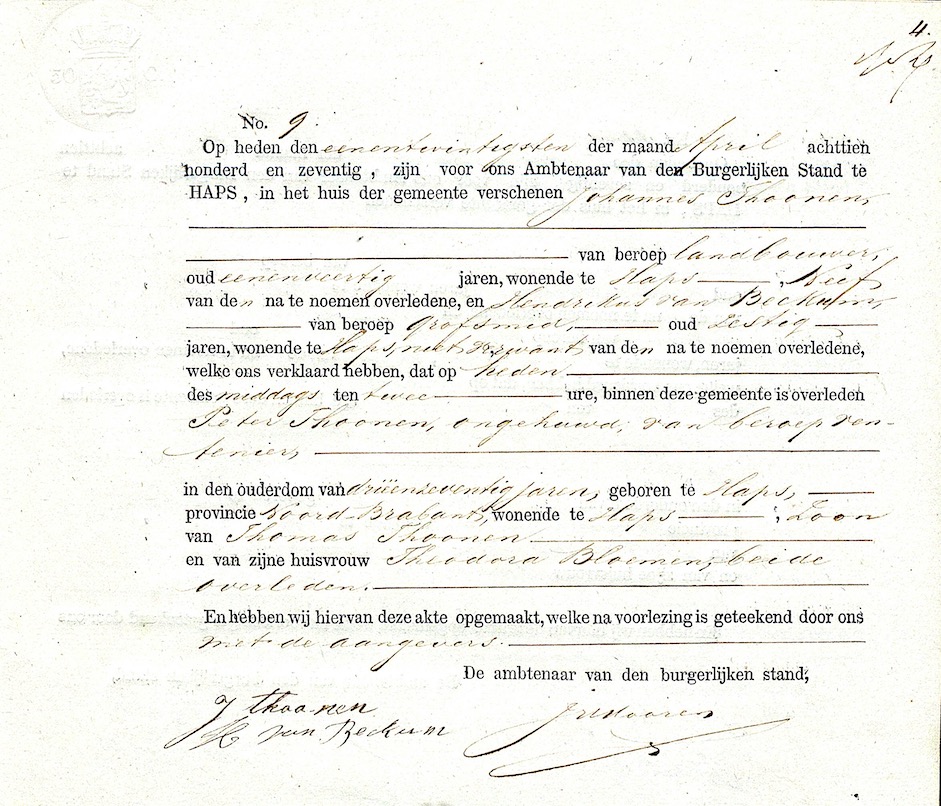 4.
No. 9.
Op heden den eenentwintigsten der maand April achttien
honderd en zeventig, zijn voor ons Ambtenaar van den Burgerlijken Stand te
HAPS, in het huis der gemeente verschenen Johannes Thoonen,
van beroep landbouwer,
oud eenenveertig jaren, wonende te Haps, Neef
van den na te noemen overledene, en Hendrikus van Beckum,
van beroep grofsmid, oud zestig
jaren, wonende te Haps, niet verwant van den na te noemen overledene,
welke ons verklaard hebben, dat op heden
des middags ten twee ure, binnen deze gemeente is overleden
Peter Thoonen, ongehuwd, van beroep ren-
tenier,
in den ouderdom van drieënzeventig jaren, geboren te Haps,
provincie Noord-Brabant, wonende te Haps, Zoon
van Thomas Thoonen
en van zijne huisvrouw Theodora Bloemen, beide
overleden.
En hebben wij hiervan deze akte opgemaakt, welke na voorlezing is geteekend door ons
met de aangevers.
De ambtenaar van den burgerlijken stand,
J Thoonen
H van Beckum